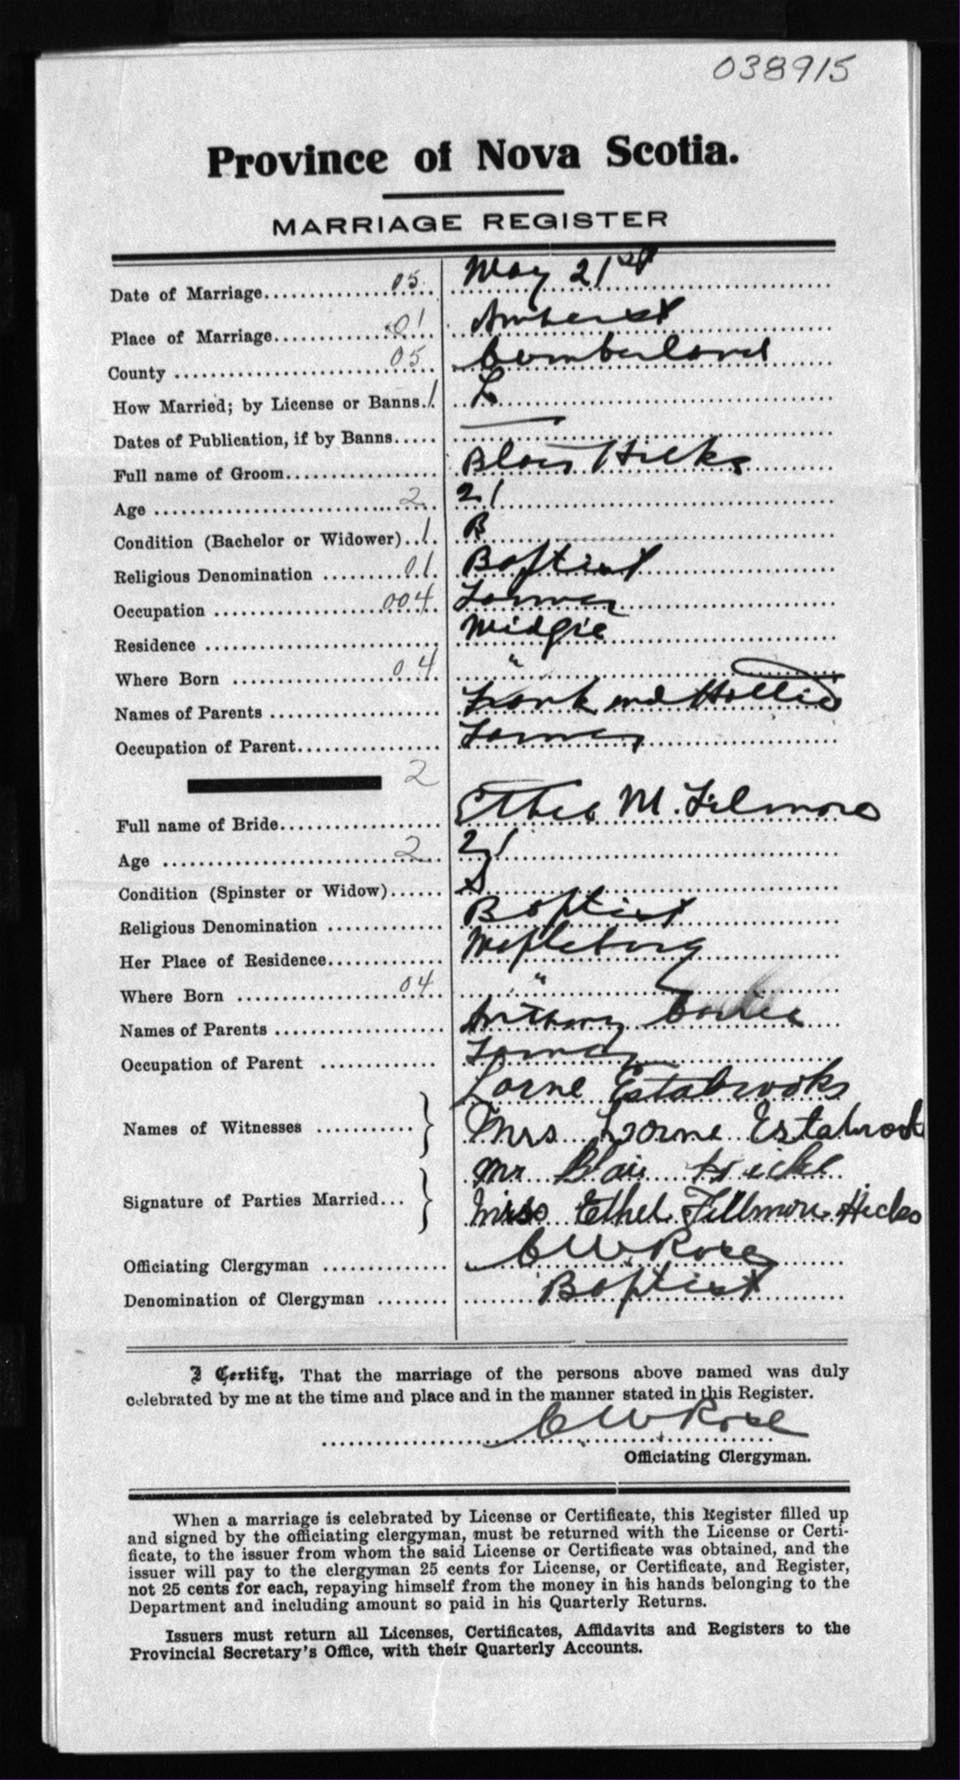 038915
Province of Nova Scotia.
MARRIAGE REGISTER
Date of Marriage 05 May 21st
Place of Marriage 01 Amherst
County 05 Cumberland
How Married; by License or Banns 1 L
Dates of Publication, if by Banns —
Full name of Groom Hicks
Age 2 21
Condition (Bachelor or Widower) 1 B
Religious Denomination 01 Baptist
Occupation 004 Farmer
Residence Midgic
Where Born 04 "
Names of Parents Frank and Hollie
Occupation of Parent Farmer
2
Full name of Bride Ethel M. Filmore
Age 2 21
Condition (Spinster or Widow) S
Religious Denomination Baptist
Her Place of Residence
Where Born 04 "
Names of Parents Anthony
Occupation of Parent Farmer
Lorne Estabrooks
Names of Witnesses } Mrs Lorne Estabrook
Mr Blair
Signature of Parties Married } Miss Ethel Fillmore Hicks
Officiating Clergyman C W Rose
Denomination of Clergyman Baptist
I Certify, That the marriage of the persons above named was duly
celebrated by me at the time and place and in the manner stated in this Register.
C W Rose
Officiating Clergyman.
When a marriage is celebrated by License or Certificate, this Register filled up
and signed by the officiating clergyman, must be returned with the License or Certi-
ficate, to the issuer from whom the said License or Certificate was obtained, and the
issuer will pay to the clergyman 25 cents for License, or Certificate, and Register,
not 25 cents for each, repaying himself from the money in his hands belonging to the
Department and including amount so paid in his Quarterly Returns.
Issuers must return all Licenses, Certificates, Affidavits and Registers to the
Provincial Secretary's Office, with their Quarterly Accounts.